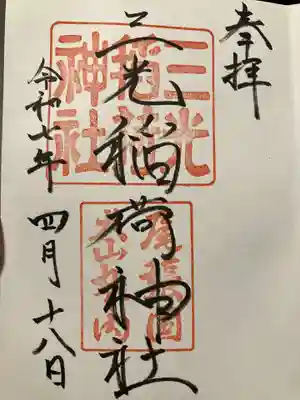 奉拝
三光稲荷神社
令和七年 四月十八日
三光
稲荷
神社
尾張国
犬山城内